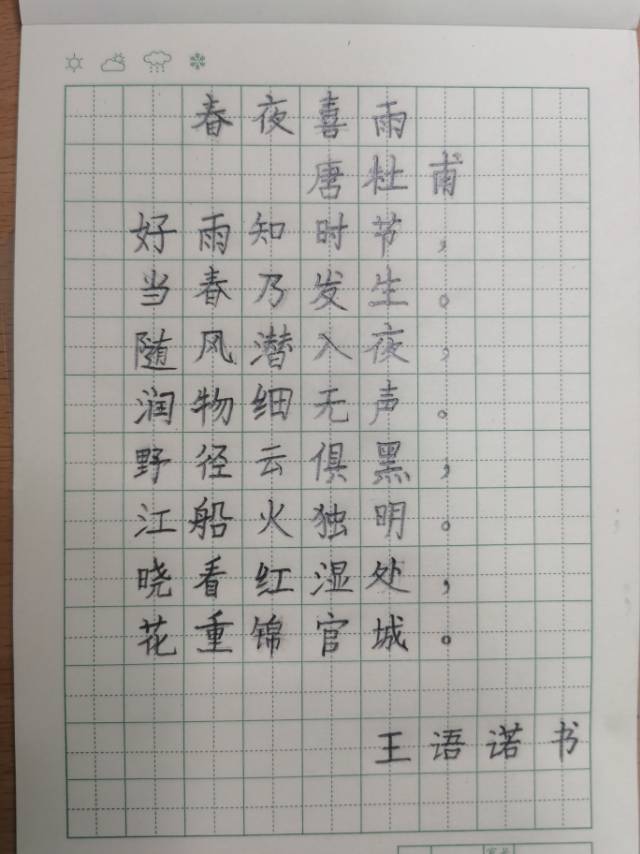 春夜喜雨
唐杜甫
好雨知时节，
当春乃发生。
随风潜入夜，
润物细无声。
野径云俱黑，
江船火独明。
晓看红湿处，
花重锦官城。
王语诺书